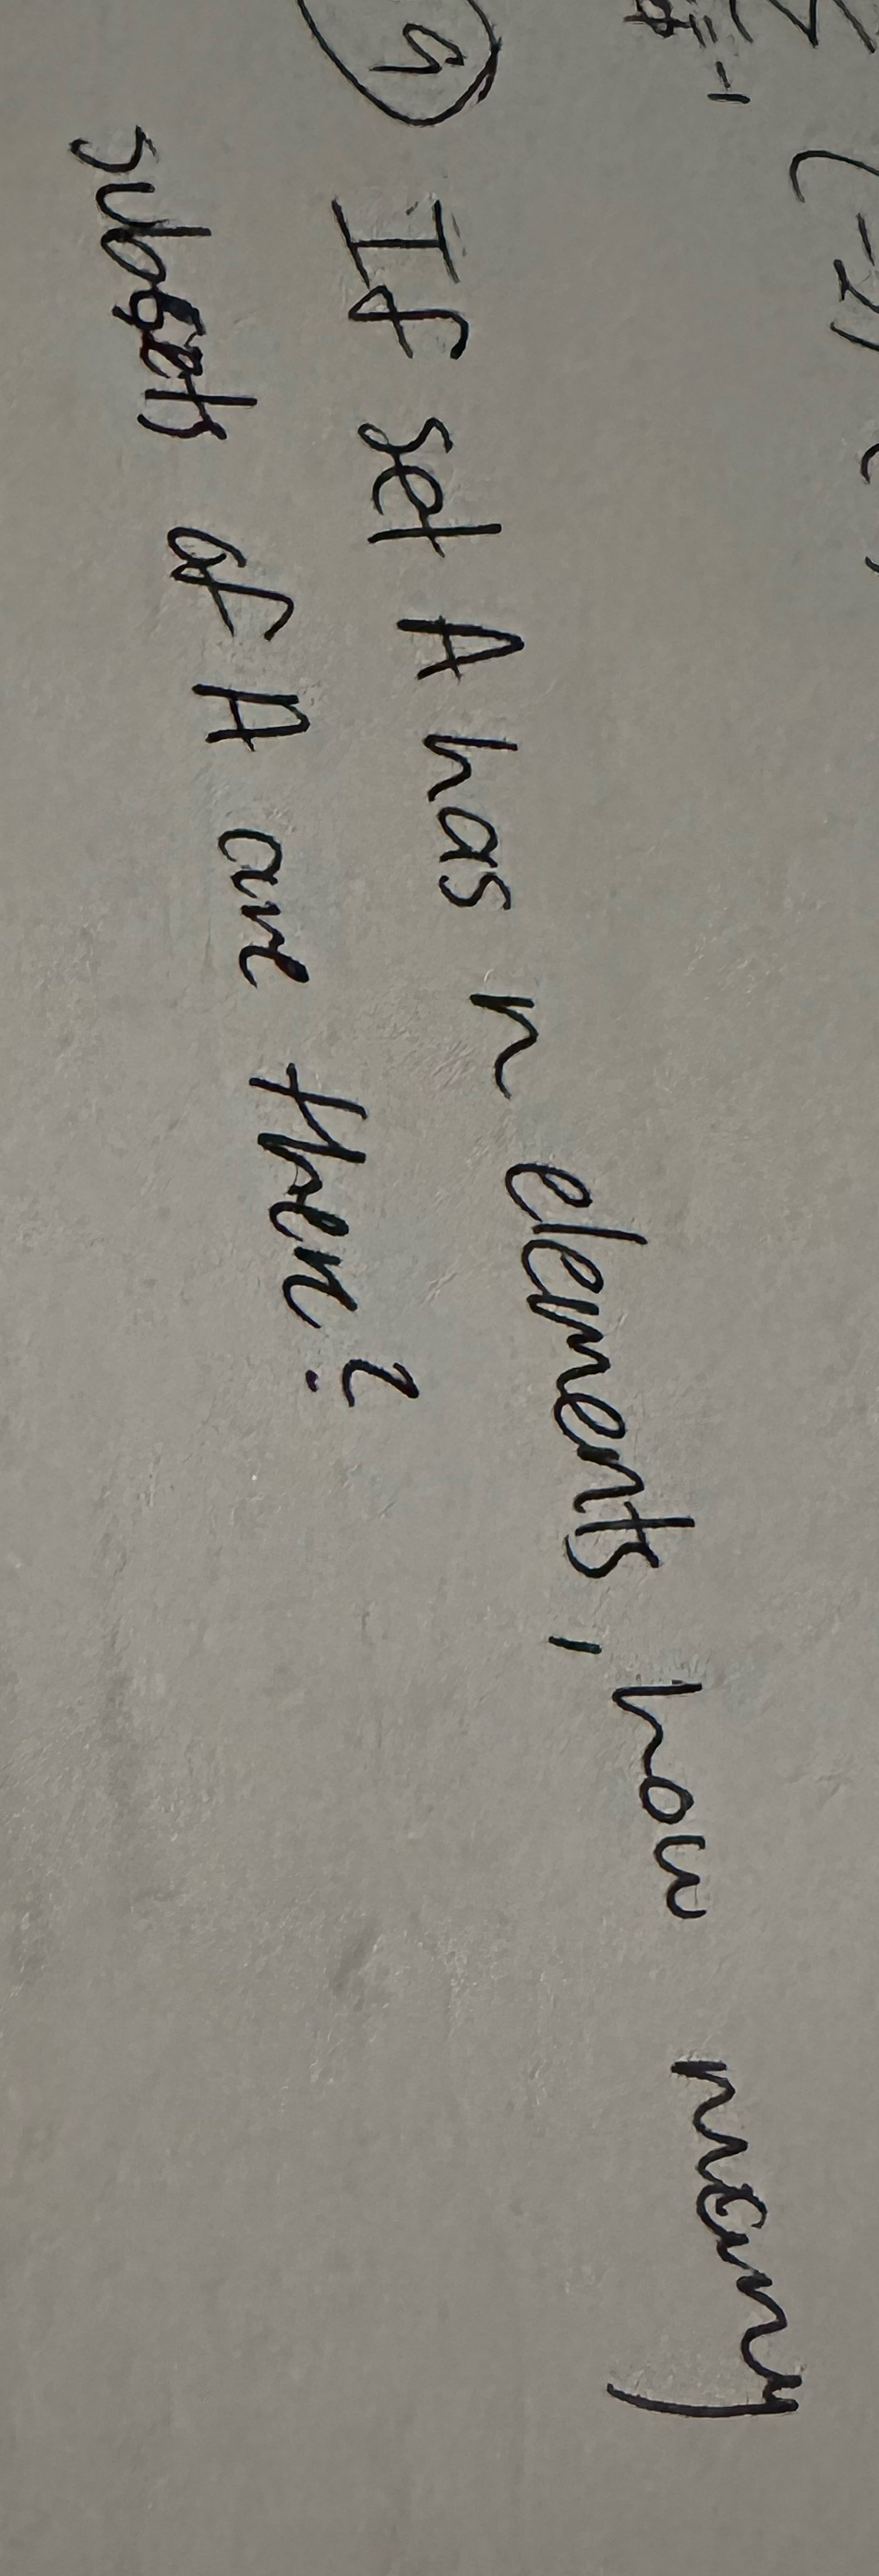 =-1 (-2)
9 If set A has n elements, how many
subsets of A are there?